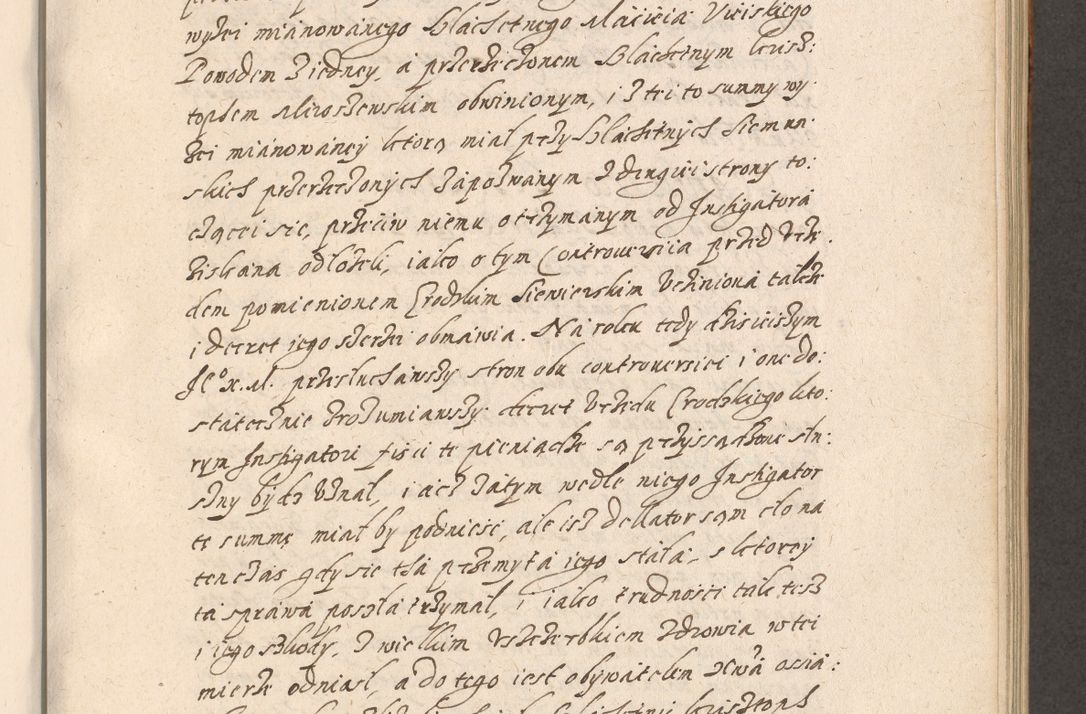 wyżei miánowánego Slachetnego Máciéia Uieiskiego
Powodem z iedney, á przerzeczonem Slachetnym krisz:
tophem Miroszewskim obwinionym, i z tei to summy wy
żei miánowáney ktorą miál przy Slachetnych Siemun:
skich przerzeczonych zápozwánym z drugiei strony to:
czącei sie, przeciw niemu otrzymánym od Instigatora
ziskána odlożeli, iáko o tym Controuersiia przed Vrzę:
dem pomienionem Grodzkim Siewierskim Vczinioná tákże
i decret jego szerzei obmáwia. Ná roku tedy dzisieiszym
Je° X. M. przesluchawszy stron obu controuersiei i one do:
státecznie zrozumiawszy decret Vrzędu Grodzkiego kto:
rym Instigatori fisci te pieniądze są przyssądzone slu:
szny bydz Vznal, i acz zátym wedle niego Instigator
tę summę miał by podnieść, ale isz dellator sąm cło na
ten czás gdy sie thá przemytá iego stálá, s ktorey
tá spráwá poszla trzymal, i iáko trudności ták tesz
i iego szkody, z wielkim Vszczerbkiem zdrowia w tei
mierze odniasl, á do tego iest obywátelem Xwá osiá: